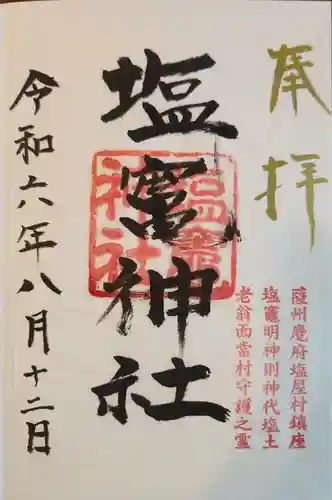 奉拝
薩州麑府塩屋村鎮座
塩竈明神則神代塩土
老翁而當村守護之霊
塩竈神社
塩竈神社
令和六年八月十二日